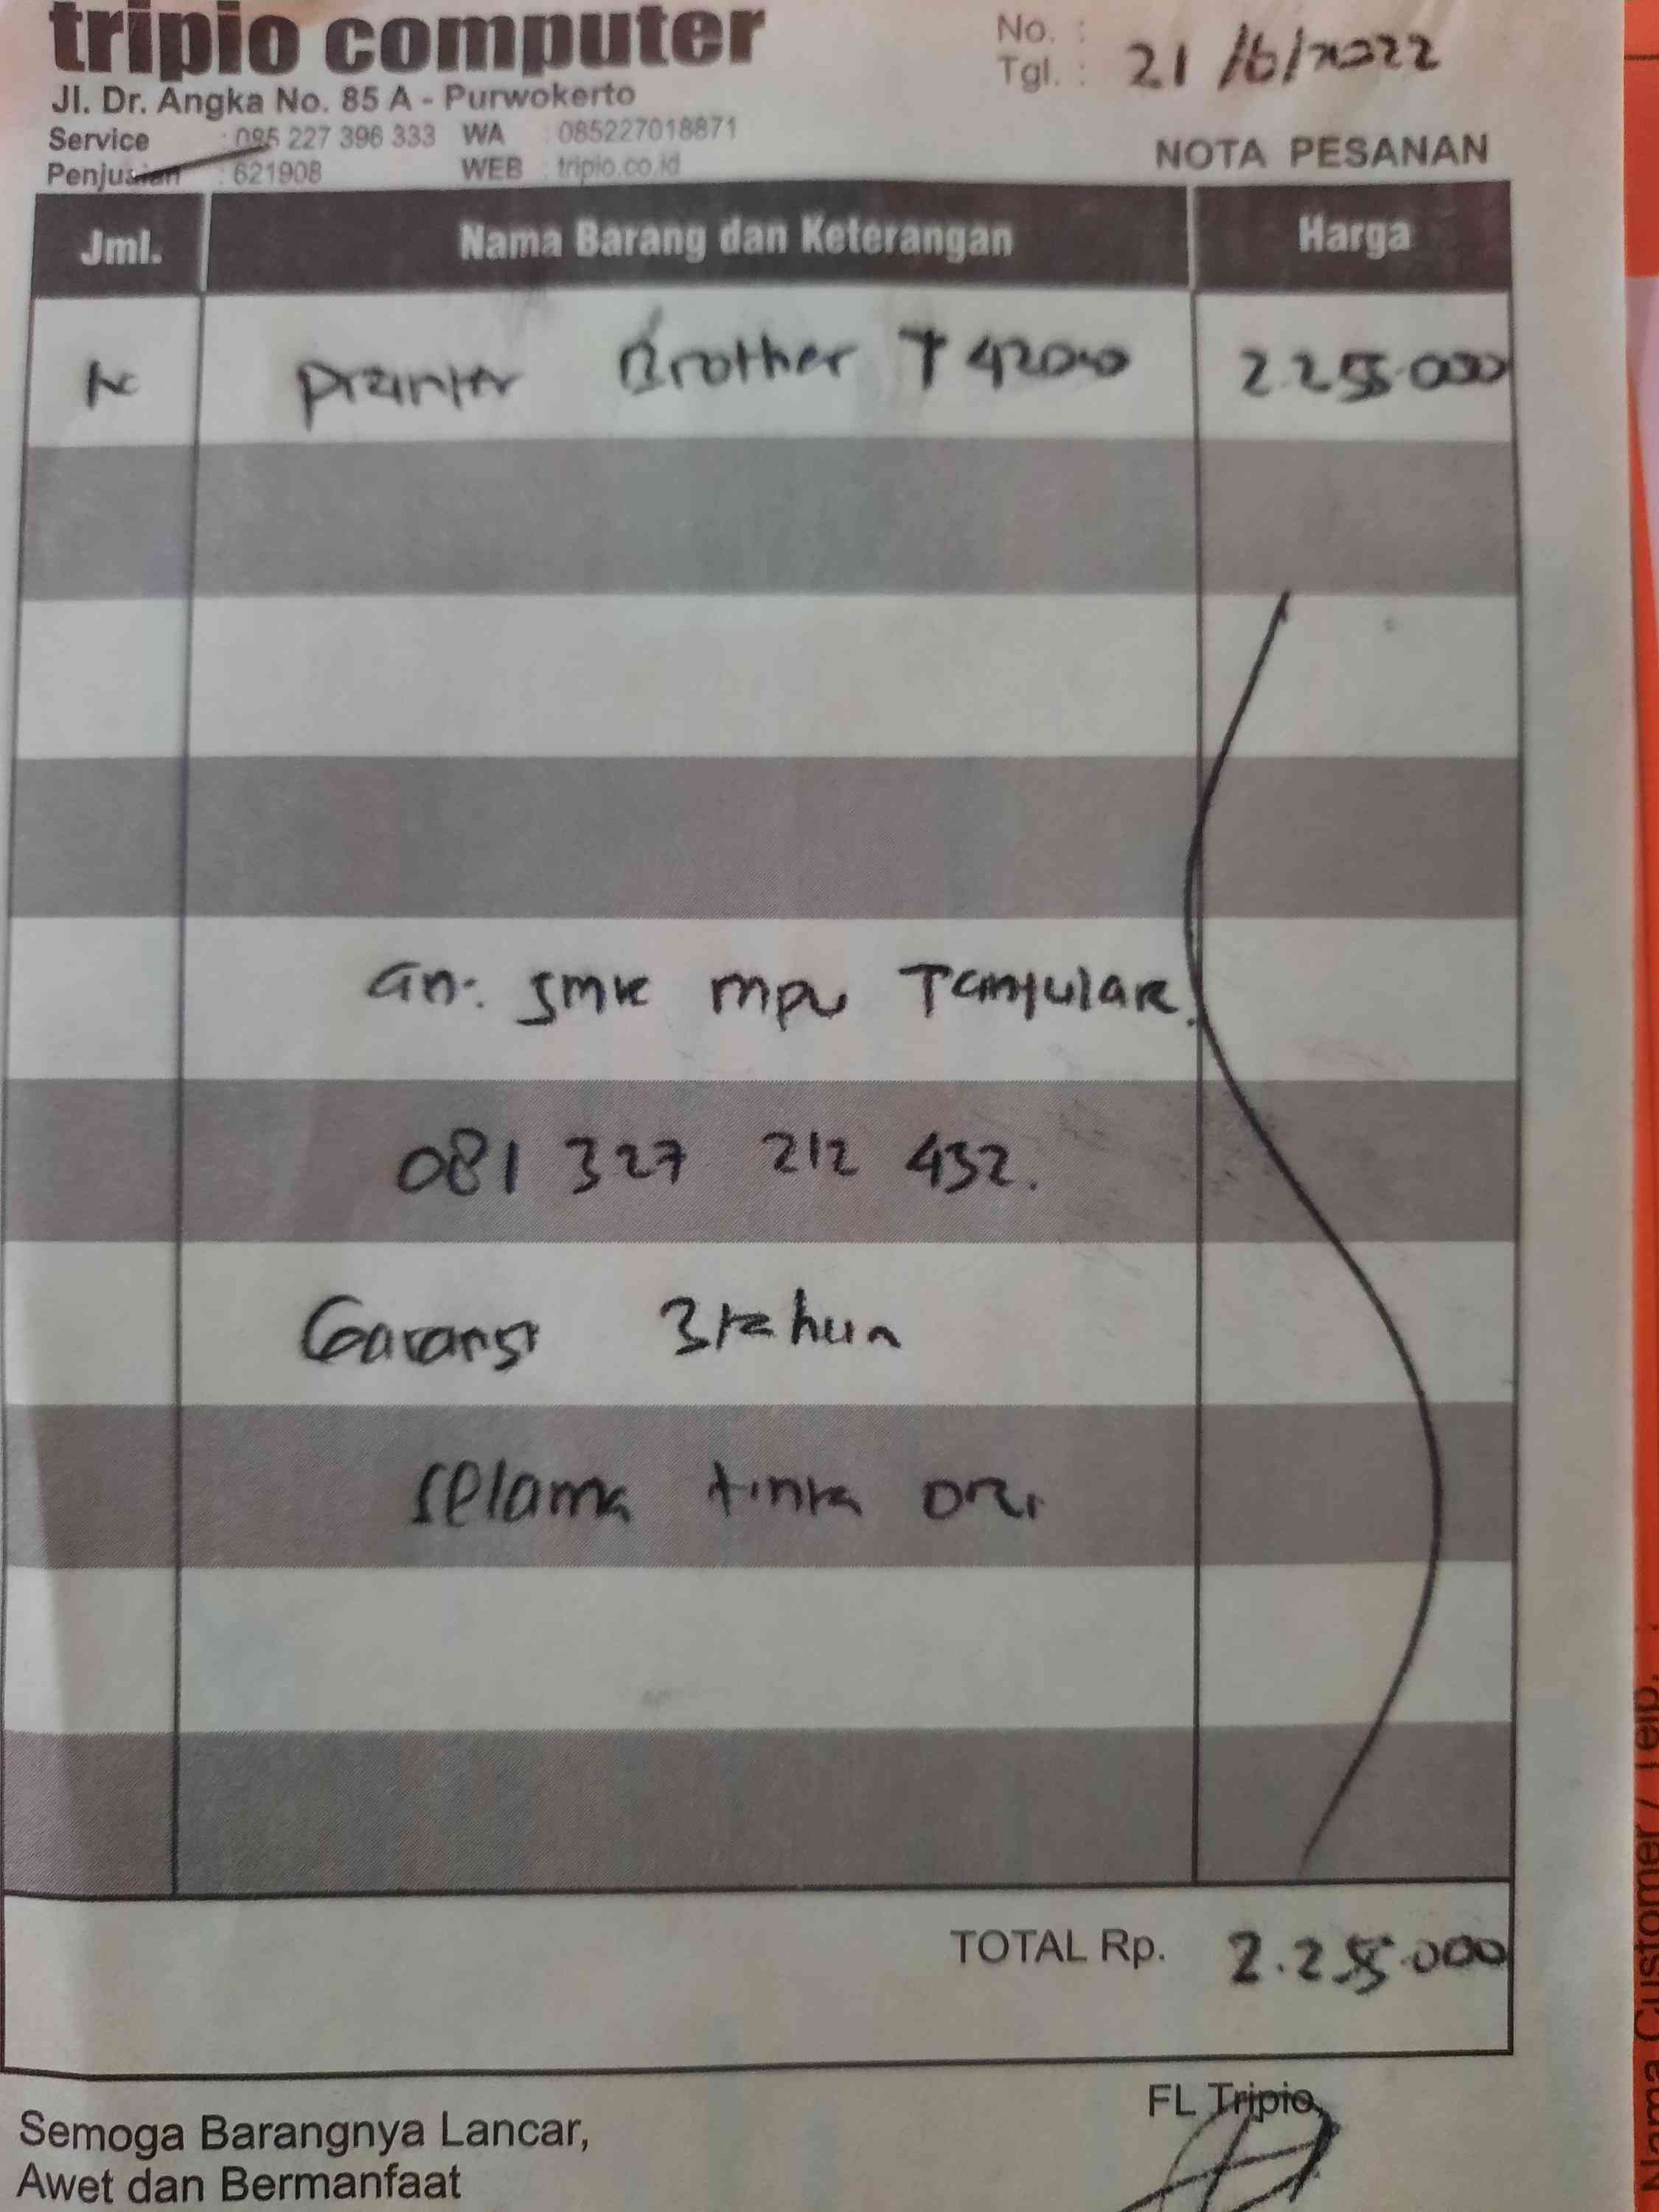 tripio computer
Jl. Dr. Angka No. 85 A - Purwokerto
Service : 085 227 396 333 WA : 085227018871
Penjualan : 621908 WEB : tripio.co.id
No. :
Tgl. : 21/6/2022
NOTA PESANAN
Jml. Nama Barang dan Keterangan Harga
Printer Brother T 4200 2.255.000
an. SMK MPU Tantular.
081 327 212 432.
Garansi 3 tahun
selama tinta ori
TOTAL Rp. 2.255.000
Semoga Barangnya Lancar,
Awet dan Bermanfaat
FL Tripio
Nama Customer / Telp.